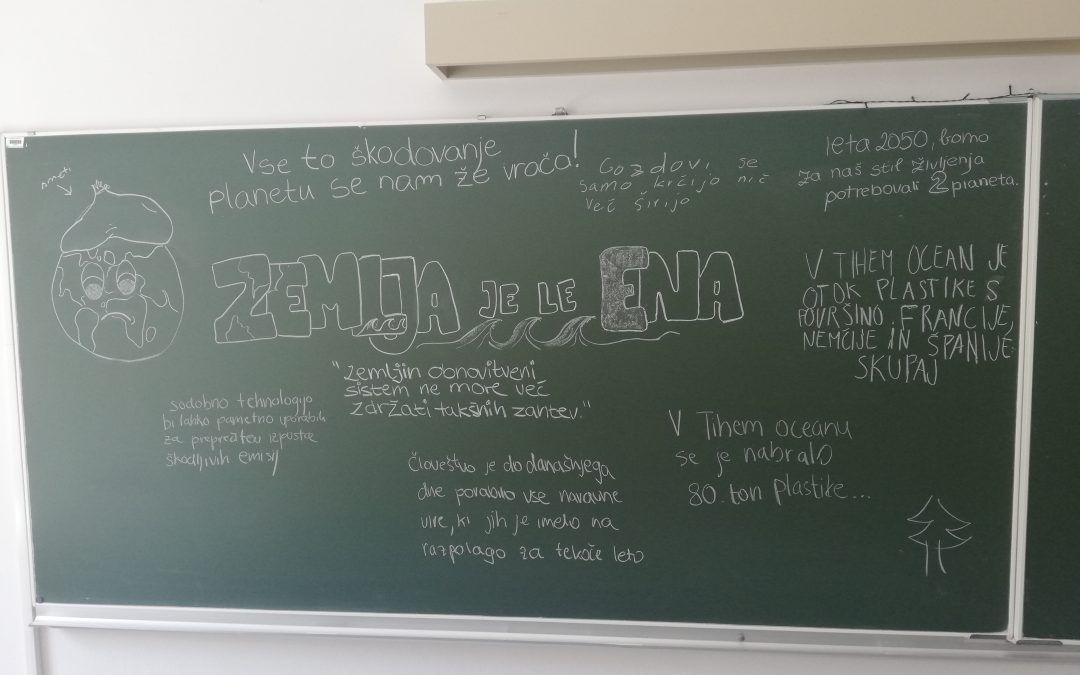 Vse to škodovanje
planetu se nam že vroča!
Gozdovi se
samo krčijo nič
več širijo
leta 2050, bomo
za naš stil življenja
potrebovali 2 planeta.
ZEMLJA JE LE ENA
V TIHEM OCEAN JE
OTOK PLASTIKE S
POVRŠINO FRANCIJE,
NEMČIJE IN ŠPANIJE
SKUPAJ
"Zemljin obnovitveni
sistem ne more več
zdržati takšnih zahtev."
sodobno tehnologijo
bi lahko pametno uporabili
za preprečitev izpustov
škodljivih emisij
V Tihem oceanu
se je nabralo
80. ton plastike...
Človeštvo je do današnjega
dne porabilo vse naravne
vire, ki jih je imelo na
razpolago za tekoče leto